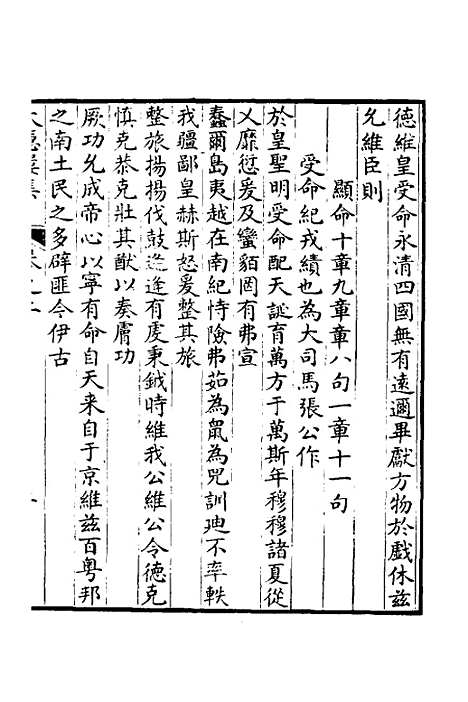 德維皇受命永清四國無有遠邇畢獻方物於戲休兹
允維臣則
顯命十章九章章八句一章十一句
受命紀戎績也為大司馬張公作
於皇聖明受命配天誕育萬方于萬斯年穆穆諸夏從
乂靡愆爰及蠻貊罔有弗宣
蠢爾島夷越在南紀恃險弗茹為鼠為兕訓迪不率軼
我疆鄙皇赫斯怒爰整其旅
整旅揚揚伐鼓逄逄有虔秉鉞時維我公維公令德克
慎克恭克壯其猷以奏膚功
厥功允成帝心以寧有命自天来自于京維兹百粤邦
之南土民之多辟匪今伊古